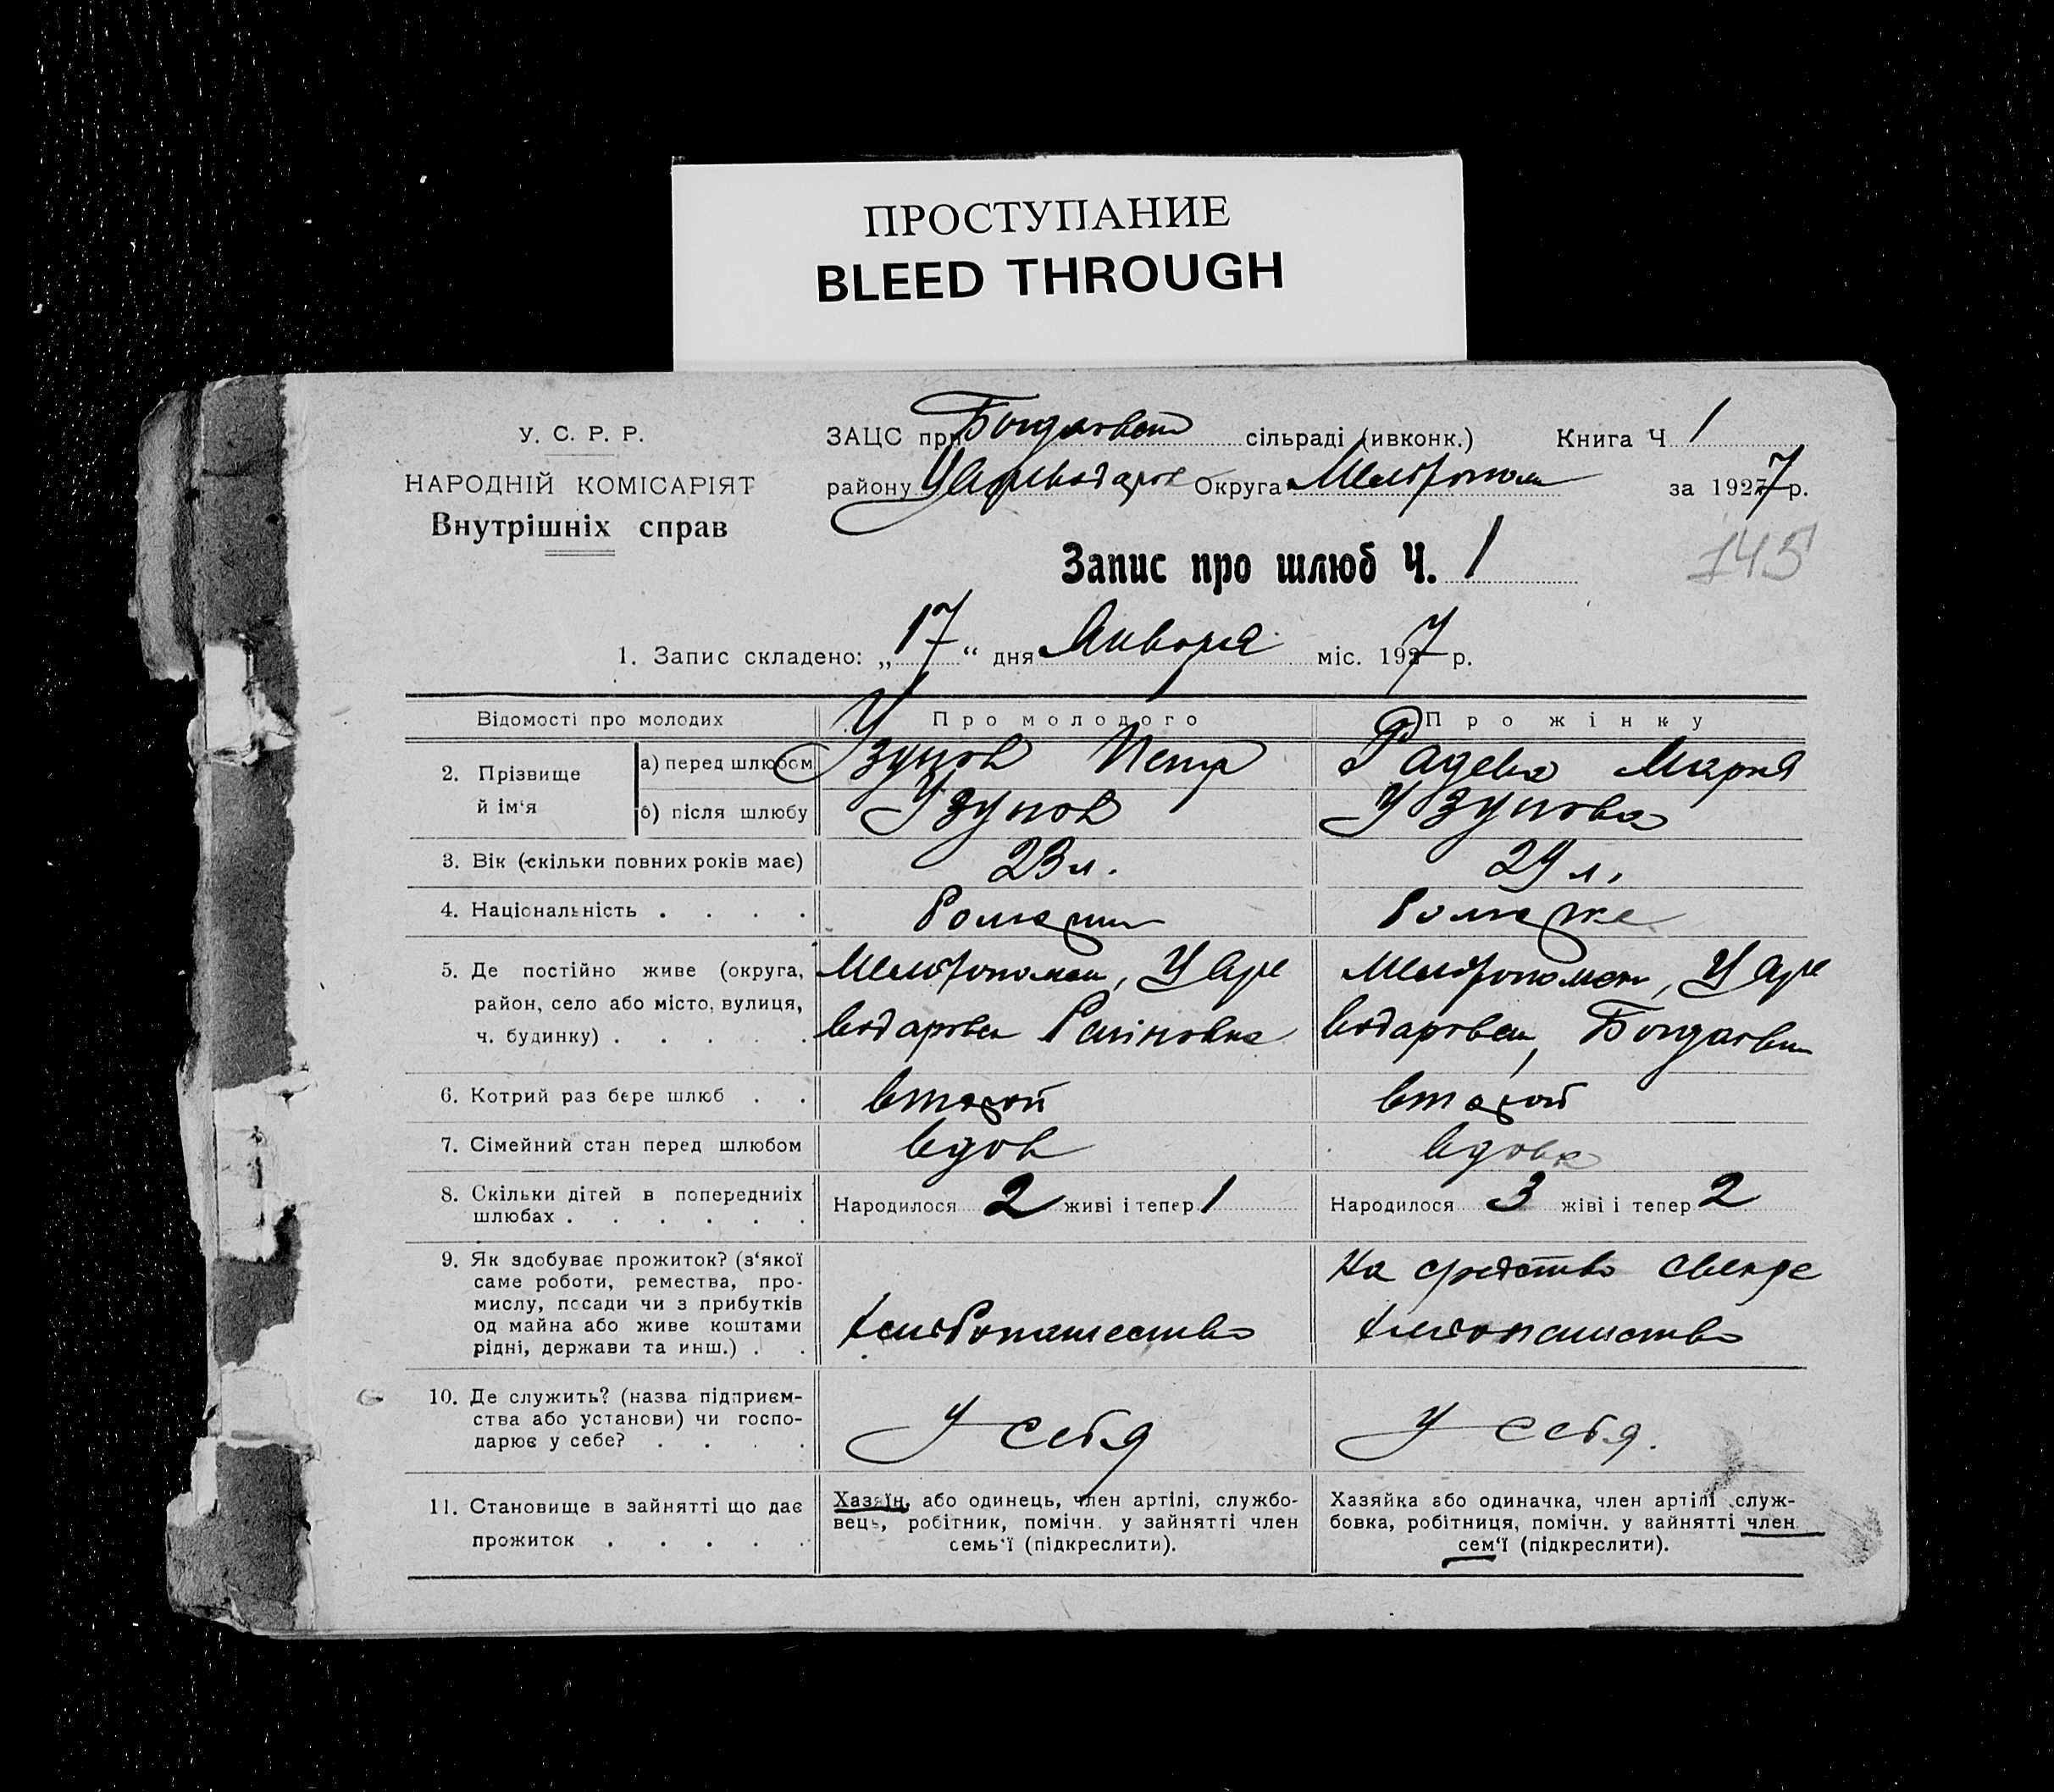 ПРОСТУПАНИЕ
BLEED THROUGH
У. С. Р. Р.
НАРОДНІЙ КОМІСАРІЯТ
Внутрішніх справ
ЗАЦС при сільраді (ивконк.) Книга Ч 1
району Цареводаров Округа Мелитопол за 1927 р.
Запис про шлюб Ч. 1
145
1. Запис складено: „17“ дня Января міс. 1927 р.
Відомості про молодих Про молодого Про жінку
2. Прізвище й ім'я
а) перед шлюбом Узунов Петр Радева Мария
б) після шлюбу Узунов Узунова
3. Вік (скільки повних років має) 23 л. 29 л.
4. Національність . . . .
5. Де постійно живе (округа,
район, село або місто, вулиця,
ч. будинку) . . . . .
Мелитополск, Царе
водаровск
Мелитополск, Царе
водаровск,
6. Котрий раз бере шлюб . . второй второй
7. Сімейний стан перед шлюбом вдов вдова
8. Скільки дітей в попередниіх
шлюбах . . . . . .
Народилося 2 живі і тепер 1 Народилося 3 жіві і тепер 2
9. Як здобуває прожиток? (з'якої
саме роботи, ремества, про-
мислу, посади чи з прибутків
од майна або живе коштами
рідні, держави та инш.) . .
хлебопашество
На средство
хлебопашство
10. Де служить? (назва підприєм-
ства або установи) чи госпо-
дарює у себе? . . . .
У себя У себя.
11. Становище в зайнятті що дає
прожиток . . . . .
Хазяїн, або одинець, член артілі, службо-
вець, робітник, помічн. у зайнятті член
семь'ї (підкреслити).
Хазяйка або одиначка, член артілі служ-
бовка, робітниця, помічн. у зайнятті член
сем'ї (підкреслити).